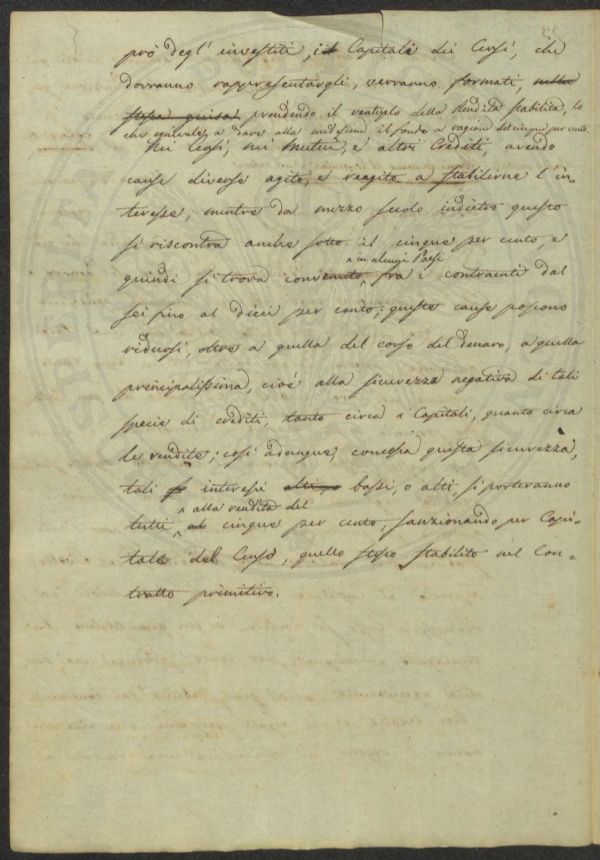 prò degl' investiti, i Capitali dei Censi, che
dovranno rappresentargli, verranno formati, nella
stessa guisa, prendendo il ventuplo della Rendita stabilita, lo
che equivale, a dare alla medesima il fondo a ragione del cinque per cento.
Nei Censi, nei Mutui, e altri Crediti, avendo
cause diverse agito, e reagito a stabilirne l' in-
teresse, mentre da mezzo secolo indietro questo
si riscontra anche sotto il cinque per cento, e
in alcuni Paesi
quindi si trova convenuto, fra i contraenti dal
sei fino al dieci per cento; queste cause possono
ridursi, oltre a quella del corso del denaro, a quella
principalissima, cioè alla sicurezza negativa di tali
specie di crediti, tanto circa i Capitali, quanto circa
le rendite; così adunque, concessa questa sicurezza,
tali interessi bassi, o alti, si porteranno
alla rendita del
tutti al cinque per cento, sanzionando per Capi-
tale del Censo, quello stesso stabilito nel Con-
tratto primitivo.